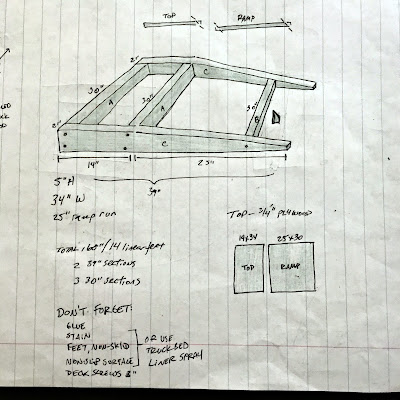 TOP RAMP
2"
C
30"
A
30"
A
30"
B
2"
C
14" 25"
39"
5" H
34" W
25" RAMP RUN
TOP - 3/4" PLYWOOD
14x34 25x30
TOP RAMP
TOTAL 168"/14 linear feet
2 39" sections
3 30" sections
DON'T FORGET:
GLUE
STAIN
FEET, NON-SKID
NONSLIP SURFACE
DECK SCREWS
OR USE
TRUCKBED
LINER SPRAY